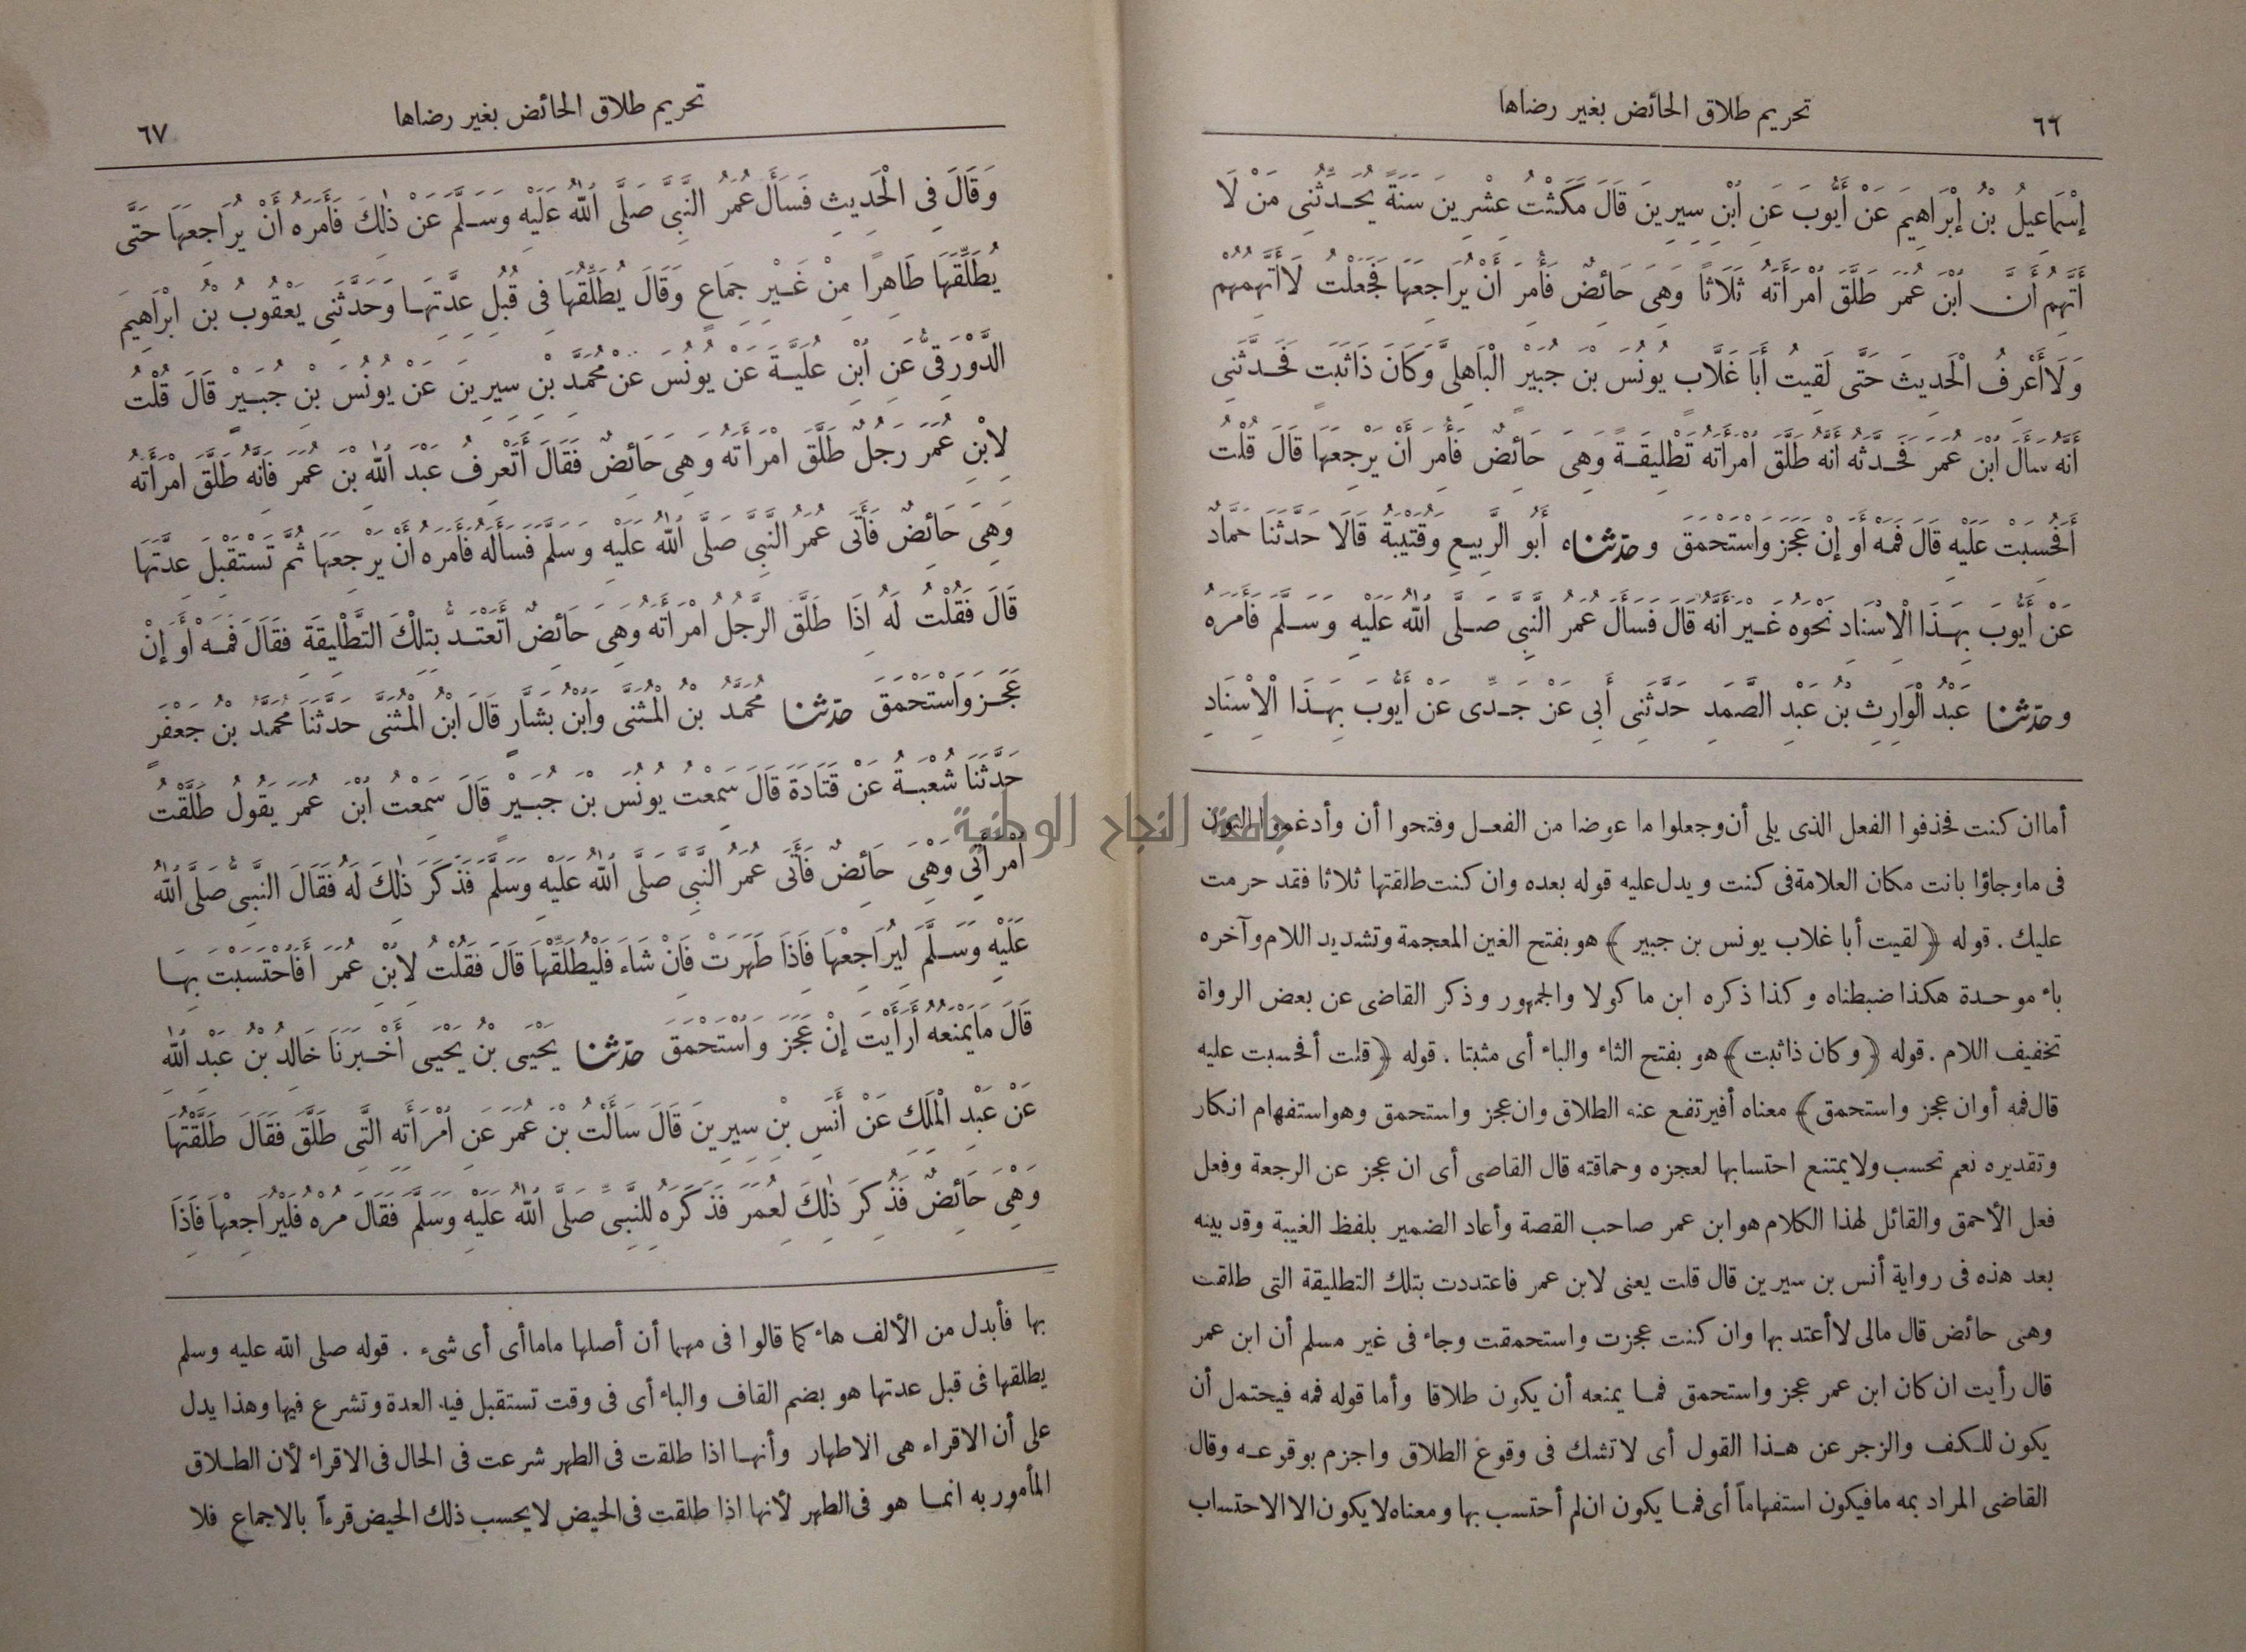 ٦٦
تحريم طلاق الحائض بغير رضاها
إِسْمَاعِيلُ بْنُ إِبْرَاهِيمَ عَنْ أَيُّوبَ عَنِ ابْنِ سِيرِينَ قَالَ مَكَثْتُ عِشْرِينَ سَنَةً يُحَدِّثُنِى مَنْ لَا
أَتَّهِمُ أَنَّ ابْنَ عُمَرَ طَلَّقَ امْرَأَتَهُ ثَلَاثًا وَهِىَ حَائِضٌ فَأُمِرَ أَنْ يُرَاجِعَهَا فَجَعَلْتُ لَا أَتَّهِمُهُمْ
وَلَا أَعْرِفُ الْحَدِيثَ حَتَّى لَقِيتُ أَبَا غَلَّابٍ يُونُسَ بْنَ جُبَيْرٍ الْبَاهِلِىَّ وَكَانَ ذَا ثَبَتٍ فَحَدَّثَنِى
أَنَّهُ سَأَلَ ابْنَ عُمَرَ فَحَدَّثَهُ أَنَّهُ طَلَّقَ امْرَأَتَهُ تَطْلِيقَةً وَهِىَ حَائِضٌ فَأُمِرَ أَنْ يَرْجِعَهَا قَالَ قُلْتُ
أَفَحُسِبَتْ عَلَيْهِ قَالَ فَمَهْ أَوَ إِنْ عَجَزَ وَاسْتَحْمَقَ وحدّثناه أَبُو الرَّبِيعِ وَقُتَيْبَةُ قَالَا حَدَّثَنَا حَمَّادٌ
عَنْ أَيُّوبَ بِهَذَا الْإِسْنَادِ نَحْوَهُ غَيْرَ أَنَّهُ قَالَ فَسَأَلَ عُمَرُ النَّبِىَّ صَلَّى اللّٰهُ عَلَيْهِ وَسَلَّمَ فَأَمَرَهُ
وحدّثنا عَبْدُ الْوَارِثِ بْنُ عَبْدِ الصَّمَدِ حَدَّثَنِى أَبِى عَنْ جَدِّى عَنْ أَيُّوبَ بِهَذَا الْإِسْنَادِ
أما ان كنت فحذفوا الفعل الذى يلى أن وجعلوا ما عوضا من الفعل وفتحوا أن وأدغموا النون
فى ما وجاؤا بانت مكان العلامة فى كنت ويدل عليه قوله بعده وان كنت طلقتها ثلاثا فقد حرمت
عليك . قوله ﴿لقيت أبا غلاب يونس بن جبير﴾ هو بفتح الغين المعجمة وتشديد اللام وآخره
باء موحدة هكذا ضبطناه وكذا ذكره ابن ماكولا والجمهور وذكر القاضى عن بعض الرواة
تخفيف اللام . قوله ﴿وكان ذا ثبت﴾ هو بفتح الثاء والباء أى مثبتا . قوله ﴿قلت أفحسبت عليه
قال فمه أوان عجز واستحمق﴾ معناه أفيرتفع عنه الطلاق وان عجز واستحمق وهو استفهام انكار
وتقديره نعم تحسب ولا يمتنع احتسابها لعجزه وحماقته قال القاضى أى ان عجز عن الرجعة وفعل
فعل الأحمق والقائل لهذا الكلام هو ابن عمر صاحب القصة وأعاد الضمير بلفظ الغيبة وقد بينه
بعد هذه فى رواية أنس بن سيرين قال قلت يعنى لابن عمر فاعتددت بتلك التطليقة التى طلقت
وهى حائض قال مالى لا أعتد بها وان كنت عجزت واستحمقت وجاء فى غير مسلم أن ابن عمر
قال رأيت ان كان ابن عمر عجز واستحمق فما يمنعه أن يكون طلاقا وأما قوله فمه فيحتمل أن
يكون للكف والزجر عن هذا القول أى لا تشك فى وقوع الطلاق واجزم بوقوعه وقال
القاضى المراد بمه ما فيكون استفهاماً أى فما يكون ان لم أحتسب بها ومعناه لا يكون الا الاحتساب
تحريم طلاق الحائض بغير رضاها
٦٧
وَقَالَ فِى الْحَدِيثِ فَسَأَلَ عُمَرُ النَّبِىَّ صَلَّى اللّٰهُ عَلَيْهِ وَسَلَّمَ عَنْ ذٰلِكَ فَأَمَرَهُ أَنْ يُرَاجِعَهَا حَتَّى
يُطَلِّقَهَا طَاهِرًا مِنْ غَيْرِ جِمَاعٍ وَقَالَ يُطَلِّقُهَا فِى قُبُلِ عِدَّتِهَا وَحَدَّثَنِى يَعْقُوبُ بْنُ ابْرَاهِيمَ
الدَّوْرَقِىُّ عَنِ ابْنِ عُلَيَّةَ عَنْ يُونُسَ عَنْ مُحَمَّدِ بْنِ سِيرِينَ عَنْ يُونُسَ بْنِ جُبَيْرٍ قَالَ قُلْتُ
لِابْنِ عُمَرَ رَجُلٌ طَلَّقَ امْرَأَتَهُ وَهِىَ حَائِضٌ فَقَالَ أَتَعْرِفُ عَبْدَ اللّٰهِ بْنَ عُمَرَ فَانَّهُ طَلَّقَ امْرَأَتَهُ
وَهِىَ حَائِضٌ فَأَتَى عُمَرُ النَّبِىَّ صَلَّى اللّٰهُ عَلَيْهِ وَسَلَّمَ فَسَأَلَهُ فَأَمَرَهُ أَنْ يَرْجِعَهَا ثُمَّ تَسْتَقْبِلَ عِدَّتَهَا
قَالَ فَقُلْتُ لَهُ اِذَا طَلَّقَ الرَّجُلُ امْرَأَتَهُ وَهِىَ حَائِضٌ أَتَعْتَدُّ بِتِلْكَ التَّطْلِيقَةِ فَقَالَ فَمَهْ أَوَ إِنْ
عَجَزَ وَاسْتَحْمَقَ حدّثنا مُحَمَّدُ بْنُ الْمُثَنَّى وَابْنُ بَشَّارٍ قَالَ ابْنُ الْمُثَنَّى حَدَّثَنَا مُحَمَّدُ بْنُ جَعْفَرٍ
حَدَّثَنَا شُعْبَةُ عَنْ قَتَادَةَ قَالَ سَمِعْتُ يُونُسَ بْنَ جُبَيْرٍ قَالَ سَمِعْتُ ابْنَ عُمَرَ يَقُولُ طَلَّقْتُ
امْرَأَتِى وَهْىَ حَائِضٌ فَأَتَى عُمَرُ النَّبِىَّ صَلَّى اللّٰهُ عَلَيْهِ وَسَلَّمَ فَذَكَرَ ذٰلِكَ لَهُ فَقَالَ النَّبِىُّ صَلَّى اللّٰهُ
عَلَيْهِ وَسَلَّمَ لِيُرَاجِعْهَا فَاذَا طَهَرَتْ فَانْ شَاءَ فَلْيُطَلِّقْهَا قَالَ فَقُلْتُ لِابْنِ عُمَرَ أَفَاحْتَسَبْتَ بِهَا
قَالَ مَا يَمْنَعُهُ أَرَأَيْتَ إِنْ عَجَزَ وَاسْتَحْمَقَ حدّثنا يَحْيَى بْنُ يَحْيَى أَخْبَرَنَا خَالِدُ بْنُ عَبْدِ اللّٰهِ
عَنْ عَبْدِ الْمَلِكِ عَنْ أَنَسِ بْنِ سِيرِينَ قَالَ سَأَلْتُ بْنَ عُمَرَ عَنِ امْرَأَتِهِ الَّتِى طَلَّقَ فَقَالَ طَلَّقْتُهَا
وَهْىَ حَائِضٌ فَذُكِرَ ذٰلِكَ لِعُمَرَ فَذَكَرَهُ لِلنَّبِىِّ صَلَّى اللّٰهُ عَلَيْهِ وَسَلَّمَ فَقَالَ مُرْهُ فَلْيُرَاجِعْهَا فَاِذَا
بها فأبدل من الألف هاء كما قالوا فى مهما أن أصلها ماما أى أى شىء . قوله صلى الله عليه وسلم
يطلقها فى قبل عدتها هو بضم القاف والباء أى فى وقت تستقبل فيه العدة وتشرع فيها وهذا يدل
على أن الاقراء هى الاطهار وأنها اذا طلقت فى الطهر شرعت فى الحال فى الاقراء لأن الطلاق
المأمور به انما هو فى الطهر لأنها اذا طلقت فى الحيض لا يحسب ذلك الحيض قرءاً بالاجماع فلا
جامعة النجاح الوطنية